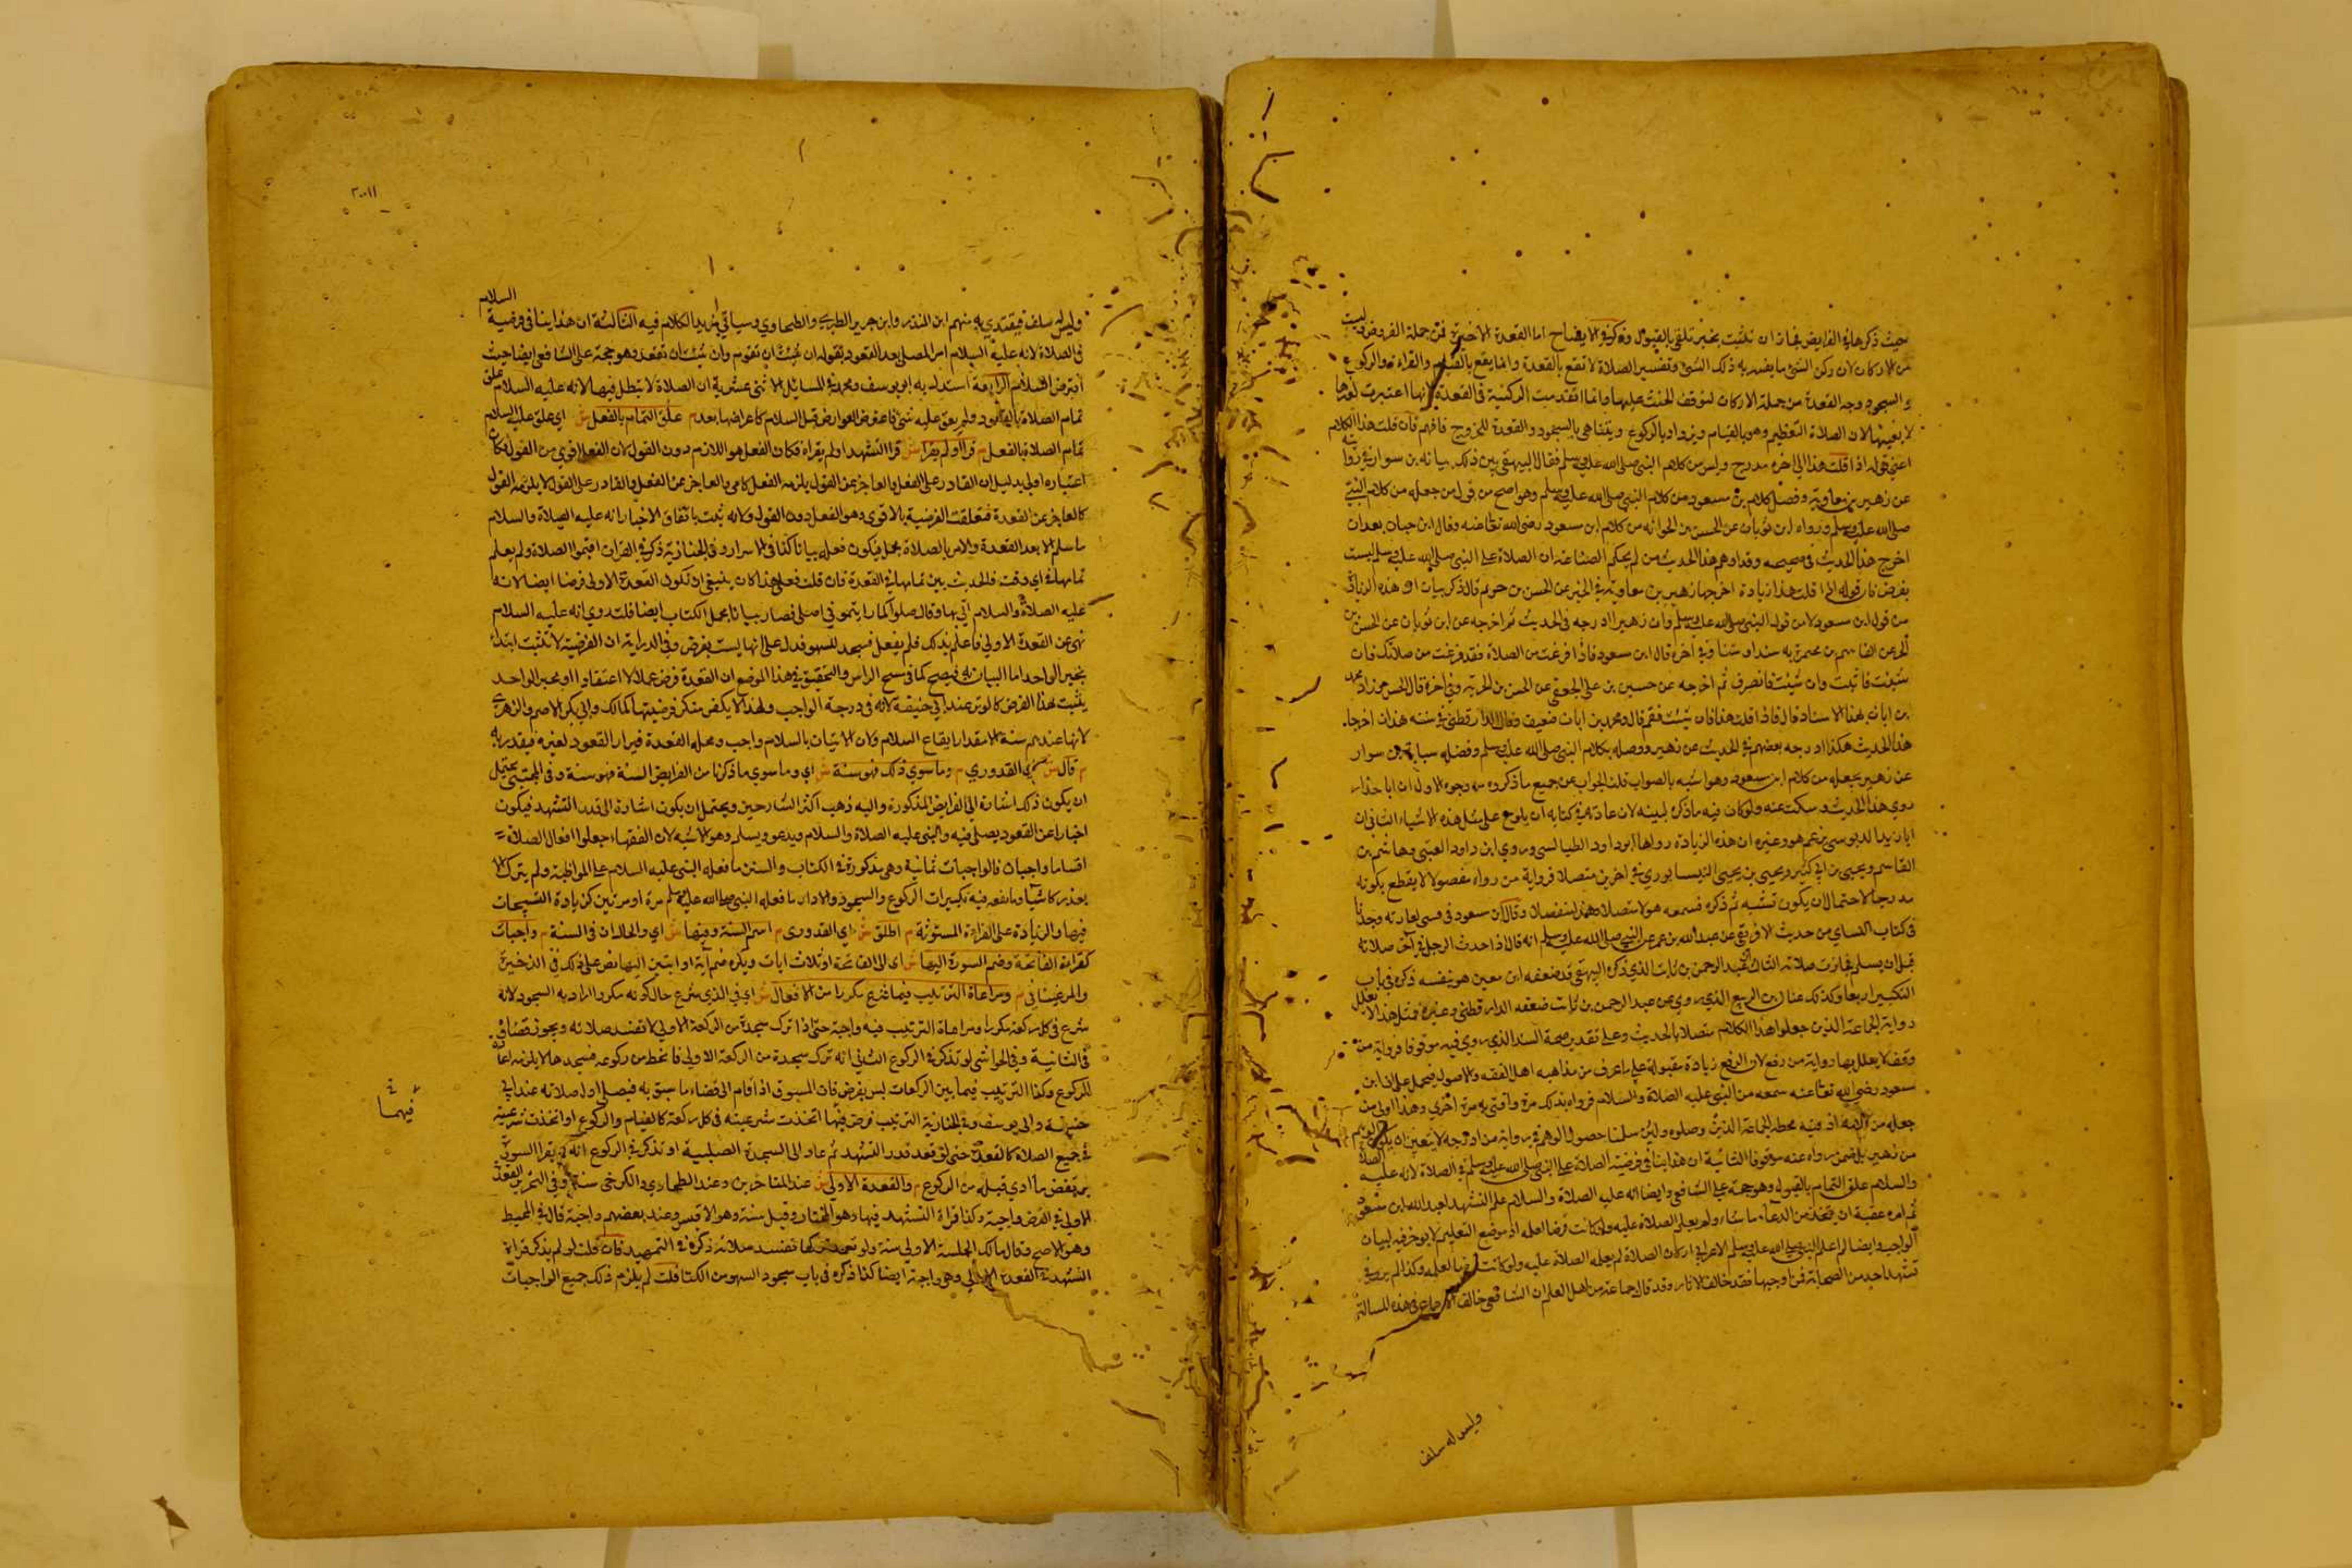 حيث ذكرها في الفرايض فجاز ان تثبت بخبر تلقى بالقبول وذكر في الايضاح اما القعدة الاخيرة فمن جملة الفروض وليست
من الاركان لان ركن الشئ ما يفسر به ذلك الشئ وتفسير الصلاة لا تقع بالقعدة وانما يقع بالقيام والقراءة والركوع
والسجود وجه القعدة من جملة الاركان لتوقف الحنث عليها وانما تقدمت الركنية في القعدة لانها اعتبرت لغيرها
لا بعينها لان الصلاة التعظيم وهو بالقيام ويزداد بالركوع ويتناهى بالسجود والقعدة للخروج فافهم فان قلت هذا الكلام
اعني قوله اذا قلت هذا الى اخره مدرج وليس من كلام النبي صلى الله عليه وسلم فقال البيهقي بين ذلك شبابة بن سوار في روايته
عن زهير بن معاوية وفصل كلام بن مسعود من كلام النبي صلى الله عليه وسلم وهو اصح من قول من جعله من كلام النبي
صلى الله عليه وسلم ورواه ابن ثوبان عن الحسن بن الحر انه من كلام ابن مسعود رضي الله تعالى عنه وقال ابن حبان بعد ان
اخرج هذا الحديث في صحيحه وقد اوهم هذا الحديث من لم يحكم الصناعة ان الصلاة على النبي صلى الله عليه وسلم ليست
بفرض فان قوله اذا قلت هذا زيادة اخرجها زهير بن معاوية في الخبر عن الحسن بن حر ثم قال ذكر بيان ان هذه الزيادة
من قول ابن مسعود لا من قول النبي صلى الله عليه وسلم وان زهيرا ادرجه في الحديث ثم اخرجه عن ابن ثوبان عن الحسن بن
الحر عن القاسم بن مخيمرة به سندا ومتنا وفي اخره قال ابن مسعود فاذا فرغت من الصلاة فقد فرغت من صلاتك فان
شئت فاثبت وان شئت فانصرف ثم اخرجه عن حسين بن علي الجعفي عن الحسن بن الحر به وفي اخره قال الحسن وزاد محمد
بن ابان بهذا الاسناد قال فاذا قلت هذا فان شئت فقم قال ومحمد بن ابان ضعيف وقال الدارقطني في سننه هذان اخرجا
هذا الحديث هكذا ادرجه بعضهم في الحديث عن زهير ووصله بكلام النبي صلى الله عليه وسلم وفصله شبابة بن سوار
عن زهير بجعله من كلام ابن مسعود وهو اشبه بالصواب قلت الجواب عن جميع ما ذكروه من وجوه الاول ان ابا داود
روى هذا الحديث وسكت عنه ولو كان فيه ما ذكره لبينه لان عادته في كتابه ان يلوح على مثل هذه الاشياء الثاني ان
ابا زيد الدبوسي زعم هو وغيره ان هذه الزيادة رواها ابو داود الطيالسي وموسى ابن داود الضبي وهاشم بن
القاسم ويحيى بن ابي كثير ويحيى بن يحيى النيسابوري في اخرين متصلا فرواية من رواه مفصولا لا يقطع بكونه
مدرجا لاحتمال ان يكون نسيه ثم ذكره فسمعه هولا متصلا وهذا منفصلا وقال ابن مسعود في موسى لعبارته وجدنا
في كتاب النساي من حديث الافريقي عن عبد الله بن عمر عن النبي صلى الله عليه وسلم انه قال اذا احدث الرجل في آخر صلاته
قبل ان يسلم فجازت صلاته الثالث عبد الرحمن بن ثابت الذي ذكره البيهقي قد ضعفه ابن معين هو نفسه ذكره في باب
التكبير اربعا وكذلك غسان بن الربيع الذي روى عن عبد الرحمن بن ثابت ضعفه الدارقطني وغيره فمثل هذا لا يعلل
رواية الجماعة الذين جعلوا هذا الكلام متصلا بالحديث وعلى تقدير صحة السند الذي روى فيه موقوفا فرواية من
وقف لا يعلل بها رواية من رفع لان الرفع زيادة مقبولة على ما عرف من مذاهب اهل الفقه والاصول فيحمل على ان ابن
مسعود رضي الله تعالى عنه سمعه من النبي عليه الصلاة والسلام فرواه بذلك مرة وافتى به مرة اخرى وهذا اولى من
جعله من كلامه اذ فيه تخطئة الجماعة الذين وصلوه ولئن سلمنا حصول الوهم في رواية من ادرجه لا يتعين ان يكون الوهم
من زهير بل ممن رواه عنه موقوفا الثانية ان هذا ينافي فرضية الصلاة على النبي صلى الله عليه وسلم في الصلاة لانه عليه الصلاة
والسلام علق التمام بالقول وهو حجة على الشافعي وايضا انه عليه الصلاة والسلام علم التشهد لعبد الله بن مسعود
ثم امره عقبه ان يتخير من الدعاء ما شاء ولم يعلم الصلاة عليه ولو كانت فرضا لعلمه اذ موضع التعليم لا يوخر فيه لبيان
الواجب وايضا لم يعلم النبي صلى الله عليه وسلم الاعرابي اركان الصلاة لم يعلمه الصلاة عليه ولو كانت فرضا لعلمه وكذا لم يرو في
تشهد احد من الصحابة فمن اوجبها فقد خالف الاثار وقد قال جماعة من اهل العلم ان الشافعي خالف الاجماع في هذه المسالة
وليس له سلف
السلام
وليس له سلف فيقتدي به منهم ابن المنذر وابن جرير الطبري والطحاوي وسياتي مزيد الكلام فيه الثالثة ان هذا ينافي فرضية
في الصلاة لانه عليه السلام امر المصلي بعد القعود بقوله ان شئت ان تقوم وان شئت ان تقعد وهو حجة على الشافعي ايضا حيث
افترض السلام الرابعة استدل به ابو يوسف ومحمد في المسايل الاثنى عشرية ان الصلاة لا تبطل فيها لانه عليه السلام علق
تمام الصلاة بالقعود ولم يبق عليه شئ فاعترض العوارض قبل السلام كاعتراضها بعده م علق التمام بالفعل ش اي علق عليه السلام
تمام الصلاة بالفعل م قرا او لم يقرا ش قرا التشهد او لم يقراه فكان الفعل هو اللازم دون القول لان الفعل اقوى من القول فكان
اعتباره اولى بدليل ان القادر على الفعل والعاجز عن القول يلزمه الفعل كالامي والعاجز عن الفعل والقادر على القول لا يلزمه القول
كالعاجز عن القعدة فتعلقت الفرضية بالاقوى وهو الفعل دون القول ولانه ثبت باتفاق الاخبار انه عليه الصلاة والسلام
ما سلم الا بعد القعدة والامر بالصلاة مجمل فيكون فعله بيانا كذا في الاسرار وفي الخبازية ذكر في القران اقيموا الصلاة ولم يعلم
تمامها في اي وقت فالحديث بين تمامها في القعدة فان قلت فعلى هذا كان ينبغي ان تكون القعدة الاولى فرضا ايضا لانه
عليه الصلاة والسلام اتى بها وقال صلوا كما رايتموني اصلي فصار بيانا لمجمل الكتاب ايضا قلت روي انه عليه السلام
نهى عن القعدة الاولى فاعلم بذلك فلم يفعل فسجد للسهو فدل على انها ليست بفرض وفي الدراية ان الفرضية لا تثبت ابتداء
بخبر الواحد اما البيان به فيصح كما في مسح الراس والتحقيق في هذا الموضع ان القعدة فرض عملا لا اعتقادا وبخبر الواحد
يثبت هذا الفرض كالوتر عند ابي حنيفة لانه في درجة الواجب ولهذا لا يكفر منكر فرضيتها كمالك وابي بكر الاصم والزهري
لانها عندهم سنة الا مقدار ايقاع السلام فان الاتيان بالسلام واجب ومحله القعدة فيراد القعود لغيره فيقدر به
م قال ش اي القدوري م وما سوى ذلك فهو سنة ش اي وما سوى ما ذكرنا من الفرايض الستة فهو سنة وفي المجتبى يحتمل
ان يكون ذلك اشارة الى الفرايض المذكورة واليه ذهب اكثر الشارحين ويحتمل ان يكون اشارة الى قدر التشهد فيكون
اخبارا عن القعود يصلي فيه والنبي عليه الصلاة والسلام ويدعو ويسلم وهو الاشبه لان الفقهاء جعلوا افعال الصلاة
اقساما واجبات فالواجبات ثمانية وهي مذكورة في الكتاب والسنن ما فعله النبي عليه السلام على المواظبة ولم يترك الا
بعذر كالثنا وما بعده فيه تكبيرات الركوع والسجود والاداب ما فعله النبي صلى الله عليه وسلم مرة او مرتين كزيادة التسبيحات
فيها والزيادة على القراءة المسنونة م اطلق ش اي القدوري م اسم السنة وفيها ش اي والحال ان في السنة م واجبات
كقراءة الفاتحة وضم السورة اليها ش اي الى الفاتحة او ثلاث ايات ويكره ضم آية او ايتين اليها نص على ذلك في الذخيرة
والمرغيناني م ومراعاة الترتيب فيما شرع مكررا من الافعال ش اي في الذي شرع حال كونه مكررا اراد به السجود لانه
شرع في كل ركعة مكررا ومراعاة الترتيب فيه واجبة حتى اذا ترك سجدة من الركعة الاولى لا تفسد صلاته ويجوز قضاؤها
في الثانية وفي الحواشي لو تذكر في الركوع الثاني انه ترك سجدة من الركعة الاولى فانحط من ركوعه فسجدها لا يلزمه اعادة
للركوع وكذا الترتيب فيما بين الركعات ليس بفرض فان المسبوق اذا قام الى قضاء ما سبق به فيصلي اول صلاته عند ابي
حنيفة وابي يوسف وفي الخبازية الترتيب فرض فيما اتخذت شرعيته في كل ركعة كالقيام والركوع او اتخذت شرعية
في جميع الصلاة كالقعدة حتى لو قعد قدر التشهد ثم عاد الى السجدة الصلبية او تذكر في الركوع انه لم يقرا السورة
يرتفض ما ادى قبله من الركوع م والقعدة الاولى ش عند المتاخرين وعند الطحاوي والكرخي سنة وفي التحرير القعدة
الاولى في الفرض واجبة وكذا قراءة التشهد فيها وهو المختار وقيل سنة وهو الاقيس وعند بعضهم واجبة قال في المحيط
وهو الاصح وقال مالك الجلسة الاولى سنة ولو تعمد تركها تفسد صلاته ذكره في التمهيد فان قلت لو لم يذكر قراءة
التشهد في القعدة الاولى وهي واجبة ايضا كذا ذكره في باب سجود السهو من الكتاب قلت لم يلزم ذلك جميع الواجبات
فيهما